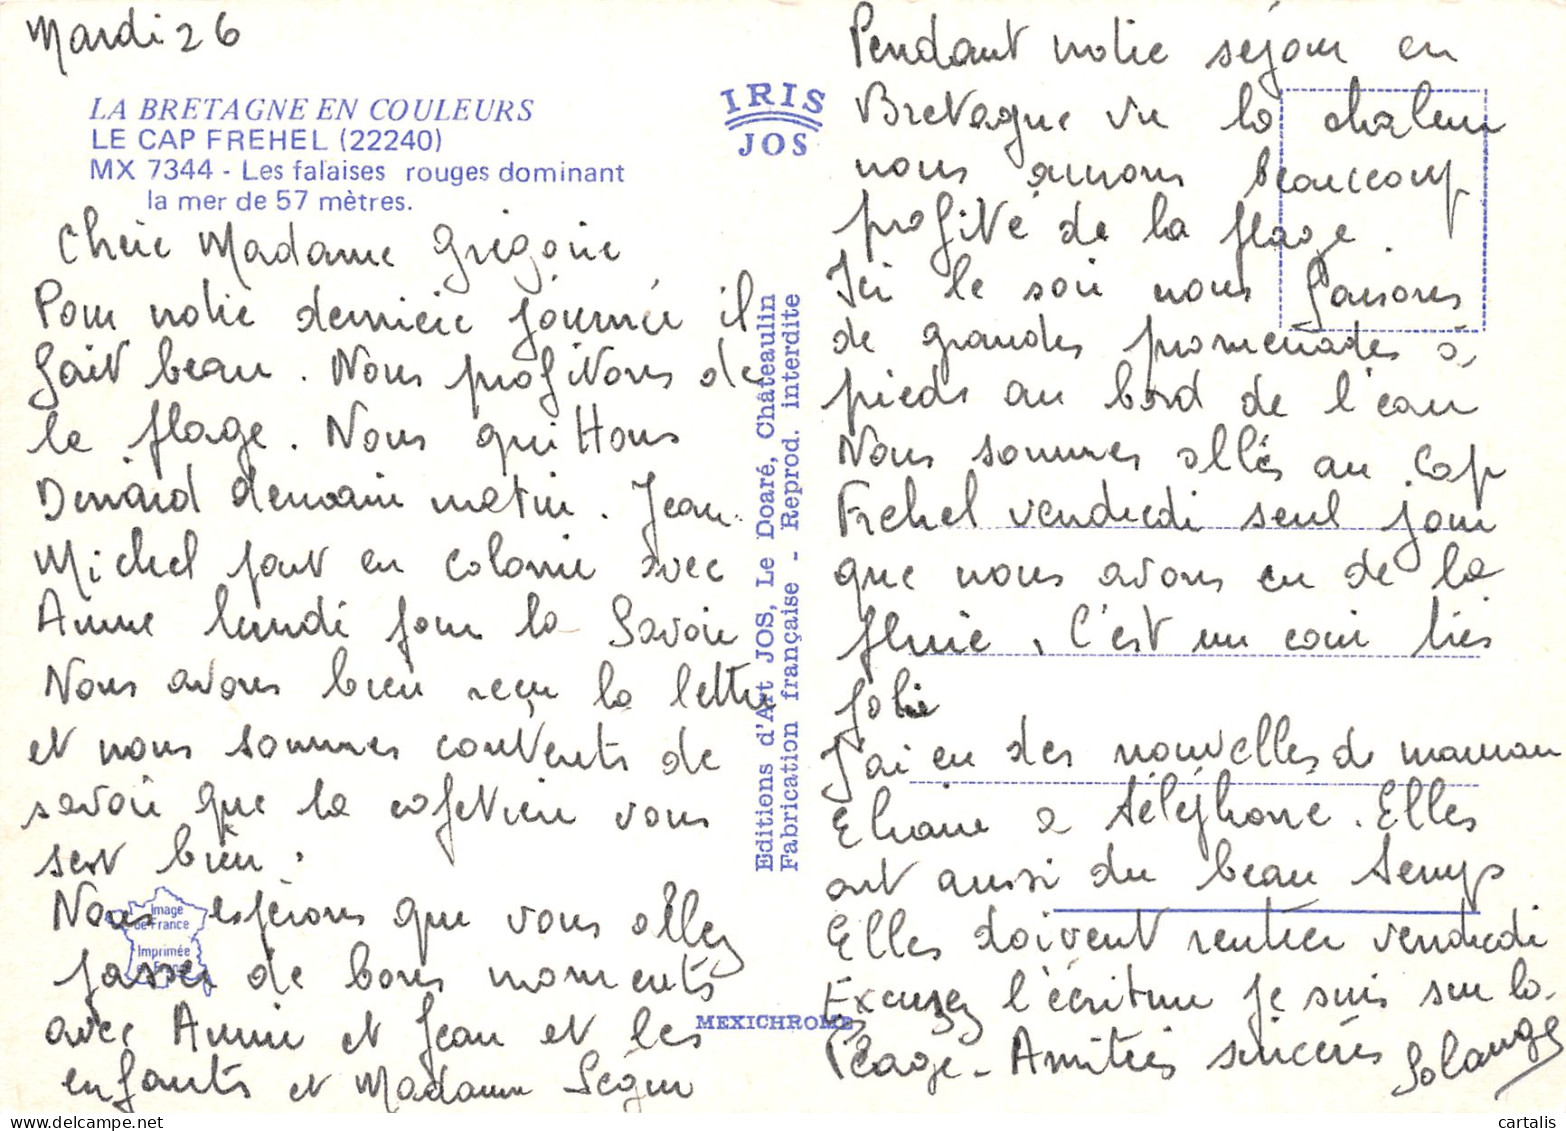 Mardi 26
LA BRETAGNE EN COULEURS
LE CAP FREHEL (22240)
MX 7344 - Les falaises rouges dominant
la mer de 57 mètres.
Chère Madame Grégoire
Pour notre dernière journée il
fait beau. Nous profitons de
la plage. Nous quittons
Dinard demain matin. Jean
Michel part en colonie avec
Anne lundi pour la Savoie
Nous avons bien reçu la lettre
et nous sommes contents de
savoir que la cafetière vous
sert bien.
Nous espérons que vous allez
passer de bons moments
avec Annie et Jean et les
enfants et Madame Ségur
IRIS
JOS
Editions d'Art JOS, Le Doaré, Châteaulin
Fabrication française - Reprod. interdite
MEXICHROME
Image
de France
Imprimée
en France
Pendant notre séjour en
Bretagne vu la chaleur
nous aurons beaucoup
profité de la plage.
Ici le soir nous faisons
de grandes promenades à
pieds au bord de l'eau
Nous sommes allés au Cap
Frehel vendredi seul jour
que nous avons eu de la
pluie. C'est un coin très
joli
J'ai eu des nouvelles de maman
Eliane a téléphone. Elles
ont aussi du beau temps
Elles doivent rentrer vendredi
Excusez l'écriture je suis sur la
Plage - Amitiés sincères Solange
cartalis